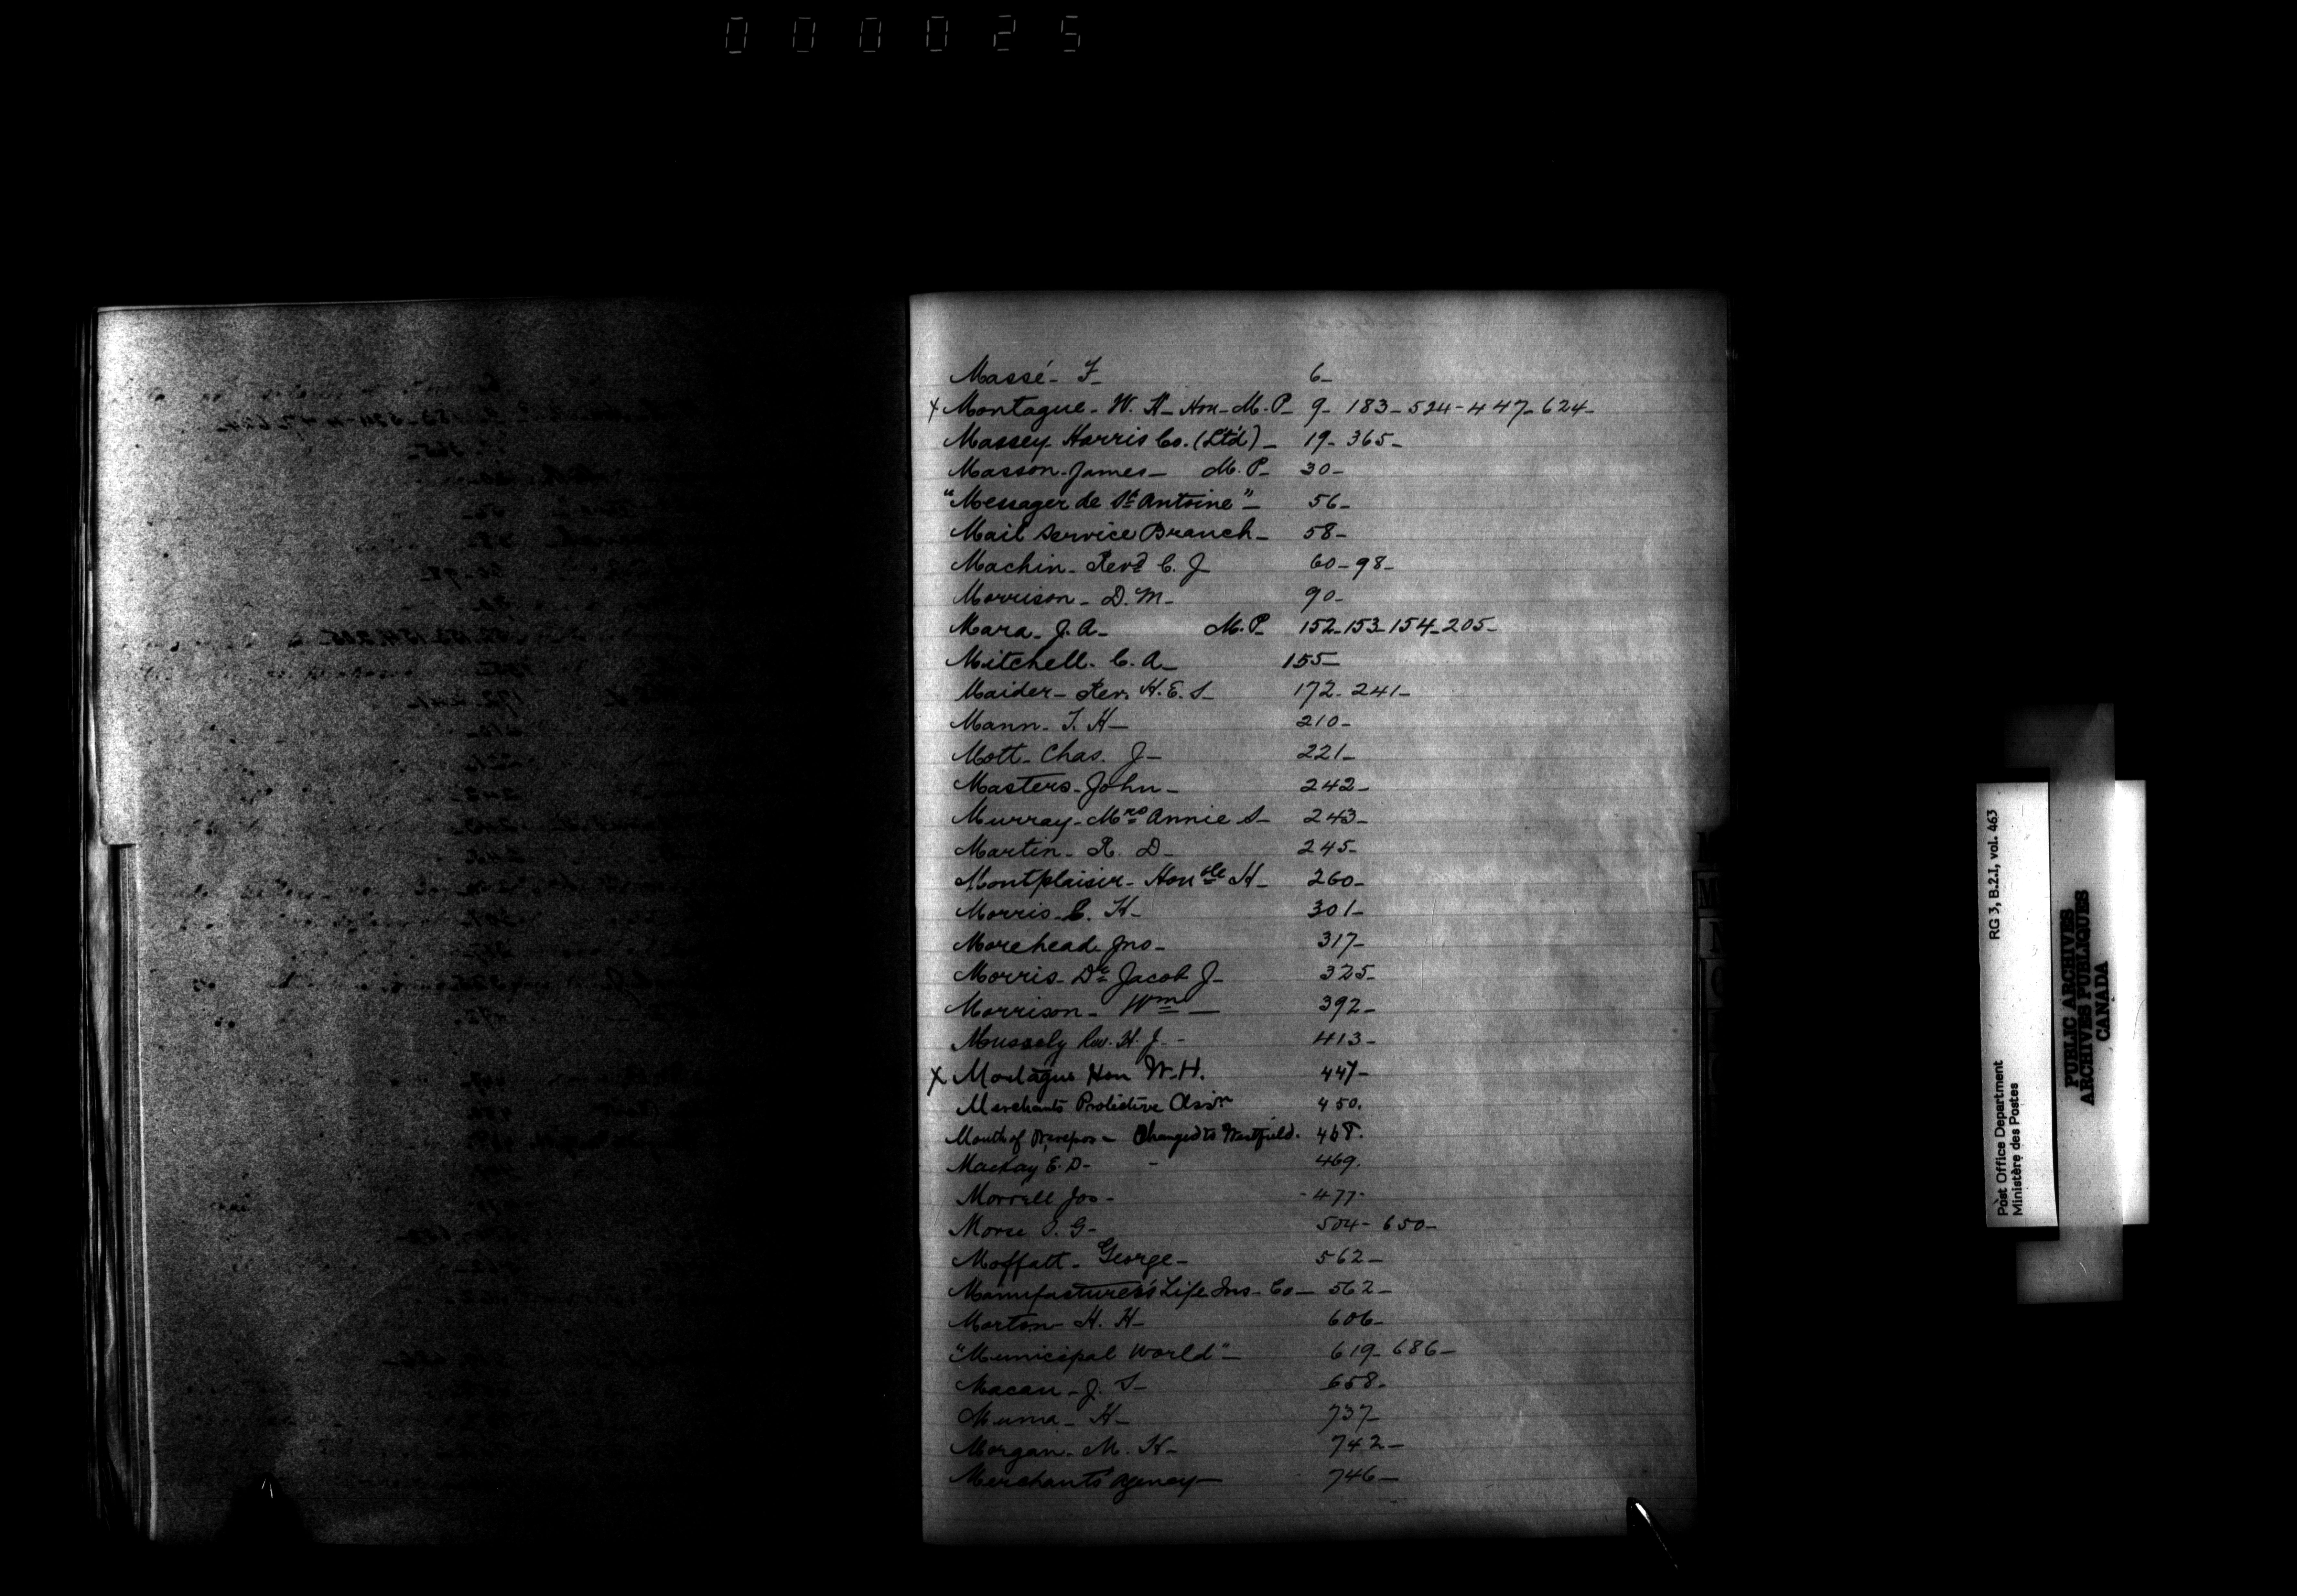 000025
Massé - F - 6 -
x Montague - W. H - Hon - M. P - 9 - 183 - 524 - 447 - 624 -
Massey Harris Co. (Ltd) - 19 - 365 -
Masson - James - M. P - 30 -
"Messager de St Antoine" - 56 -
Mail Service Branch - 58 -
Machin - Revd C. J 60 - 98 -
Morrison - D. M - 90 -
Mara - J. A - M. P - 152 - 153 - 154 - 205 -
Mitchell - C. A - 155 -
Maider - Rev. H. E. S - 172 - 241 -
Mann - T. H - 210 -
Mott - Chas. J - 221 -
Masters - John - 242 -
Murray - Mrs Annie S - 243 -
Martin - R. D - 245 -
Montplaisir - Honble H - 260 -
Morris - C. H - 301 -
Morehead Jno - 317 -
Morris - Dr Jacob J - 325 -
Morrison - Wm - 392 -
Mussely Rev. H. J. - 413 -
x Montague Hon W. H. 447 -
Merchants Protective Assn 450.
Mouth of - Changed to Westfield. 468.
Mackay E. D - - 469.
Morrell Jos - - 477 -
Morse G - 504 - 650 -
Moffatt - George - 562 -
Manufacturers' Life Ins - Co - 562 -
Morton - H. H - 606 -
"Municipal World" - 619 - 686 -
Macan - J. T - 658 -
Muma - H - 737 -
Morgan - M. H - 742 -
Merchants' Agency - 746 -
M
N
O
Post Office Department
Ministère des Postes
RG 3, B.2.1, vol. 463
PUBLIC ARCHIVES
ARCHIVES PUBLIQUES
CANADA